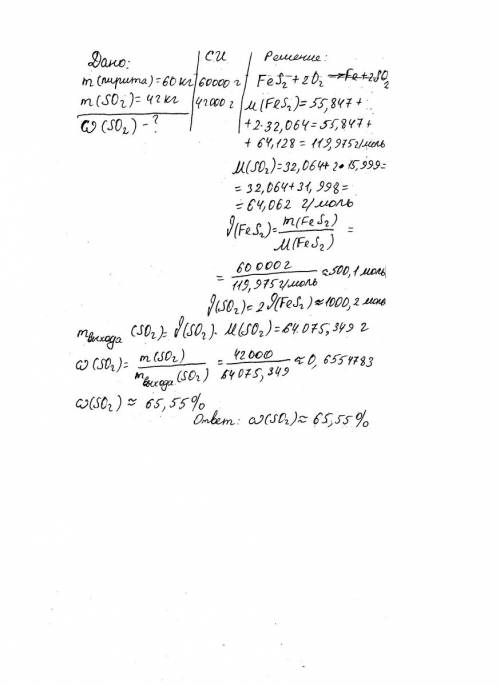 Дано:
СИ
Решение:
m(пирита)=60 кг 60000 г
m(SO₂)=42 кг 42000 г
ω(SO₂)-?
FeS₂+2O₂→Fe+2SO₂
M(FeS₂)=55,847+
+2·32,064=55,847+
+64,128=119,975 г/моль
M(SO₂)=32,064+2·15,999=
=32,064+31,998=
=64,062 г/моль
ϑ(FeS₂)=m(FeS₂)/M(FeS₂) =
=60000 г/119,975 г/моль≈500,1 моль
ϑ(SO₂)=2ϑ(FeS₂)≈1000,2 моль
mвыхода(SO₂)=ϑ(SO₂)·M(SO₂)=64075,349 г
ω(SO₂)=m(SO₂)/mвыхода(SO₂)=42000/64075,349≈0,6554783
ω(SO₂)≈65,55%
Ответ: ω(SO₂)≈65,55%